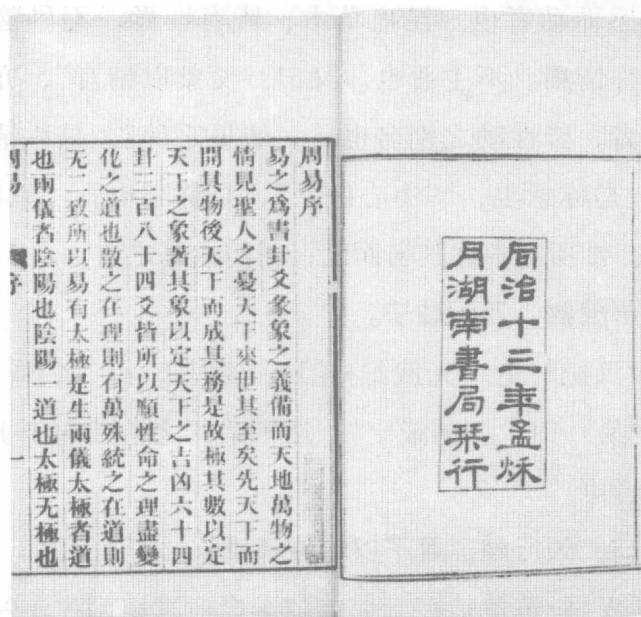 同治十三年孟秌
月湖南書局栞行
周易序
易之爲書卦爻彖象之義備而天地萬物之
情見聖人之憂天下來世其至矣先天下而
開其物後天下而成其務是故極其數以定
天下之象著其象以定天下之吉凶六十四
卦三百八十四爻皆所以順性命之理盡變
化之道也散之在理則有萬殊統之在道則
无二致所以易有太極是生兩儀太極者道
也兩儀者陰陽也陰陽一道也太極无極也
周易
序
一